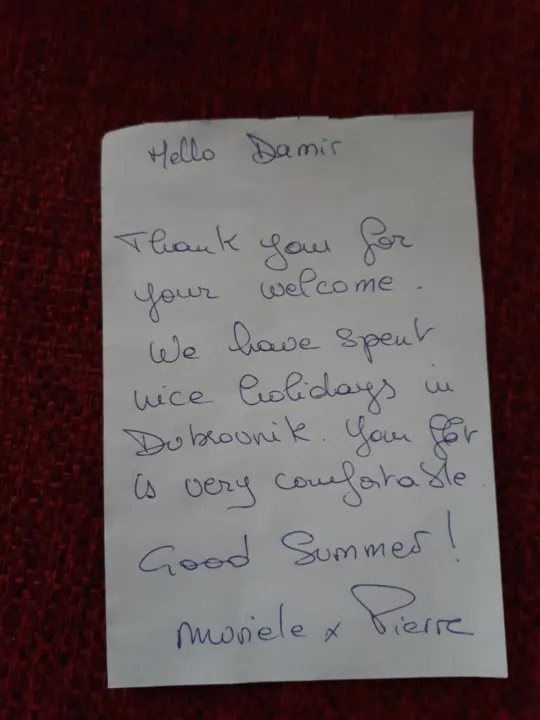 Hello Damir
Thank you for
your welcome.
We have spent
nice holidays in
Dubrovnik. You
is very comfortable.
Good Summer!
x Pierre